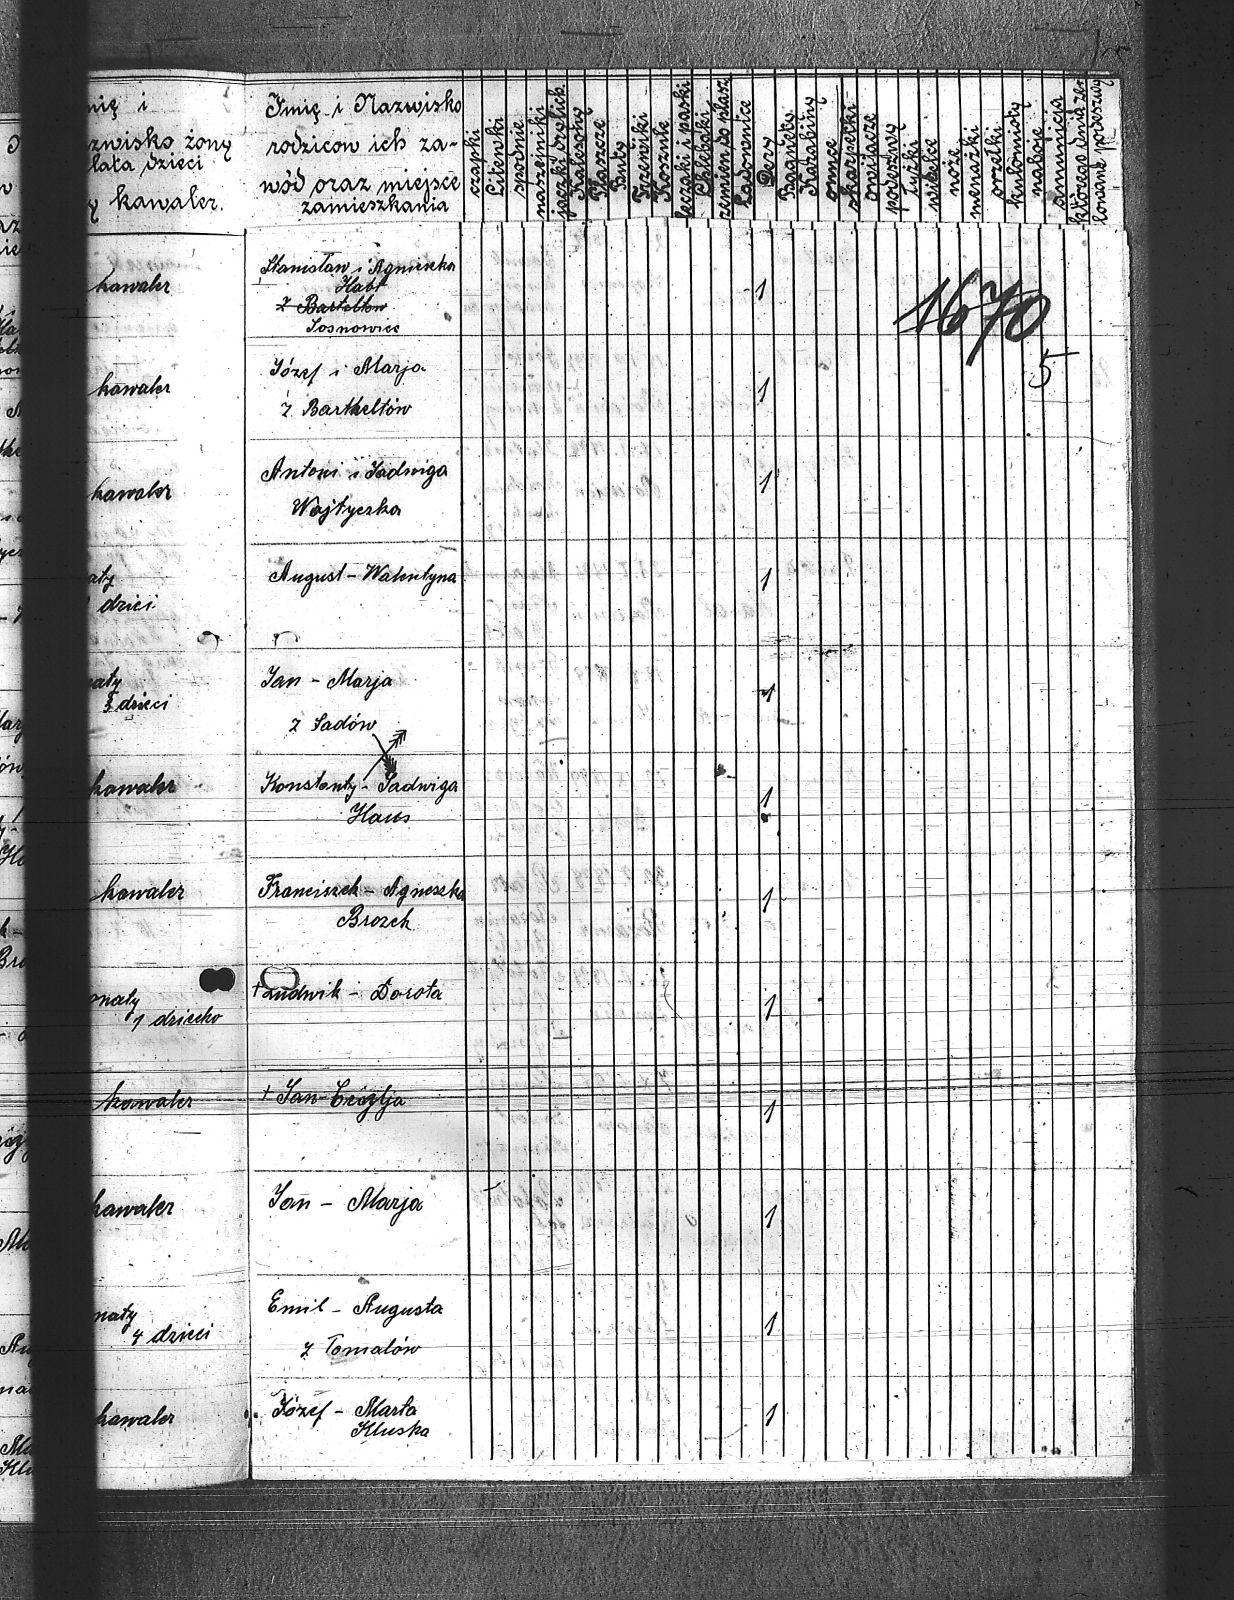 nię i
zwisko żony
lata dzieci
y kawaler.
Imię i Nazwisko
rodzicow ich za-
wód oraz miejsce
zamieszkania
czapki
Litewki
spodnie
naszelniki
Kalesony
Płaszcze
Buty
Trzewiki
Koszule
Chlebaki
Ładownice
Dery
Bagnety
Karabiny
onuce
skarpetki
owijacze
podeszwy
Łyżki
widelce
noże
menażki
orzełki
kulomioty
naboje
amunicja
kawaler
Stanisław i Agnieszka
Habt
z Barteltow
Sosnowiec
1
1670
5
kawaler
Józef i Marja
z Bartheltów
1
kawaler
Antoni i Jadwiga
Wojtyczka
1
aty
dzieci
August - Walentyna
1
aty
3 dzieci
Jan - Marja
z Sadów
1
kawaler
Konstanty - Jadwiga
Haus
1
kawaler
Franciszek - Agnieszka
Brozek
1
naty
1 dziecko
+ Ludwik - Dorota
1
kawaler
+ Jan - Cecylja
1
kawaler
Jan - Marja
1
naty
4 dzieci
Emil - Augusta
z Tomalów
1
kawaler
Józef - Marta
Kluska
1